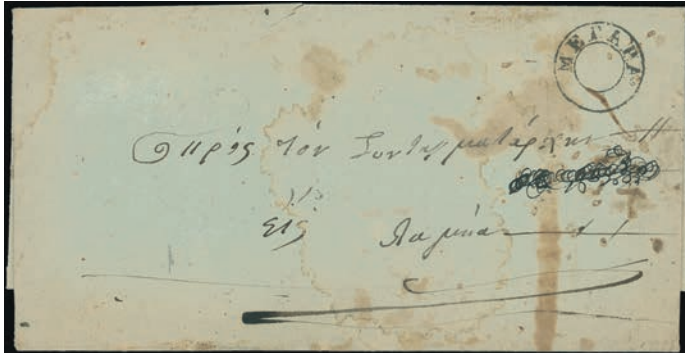 ΜΕΓΑΡΑ
Πρὸς τὸν Συνταγματάρχην
Εἰς Λαμία